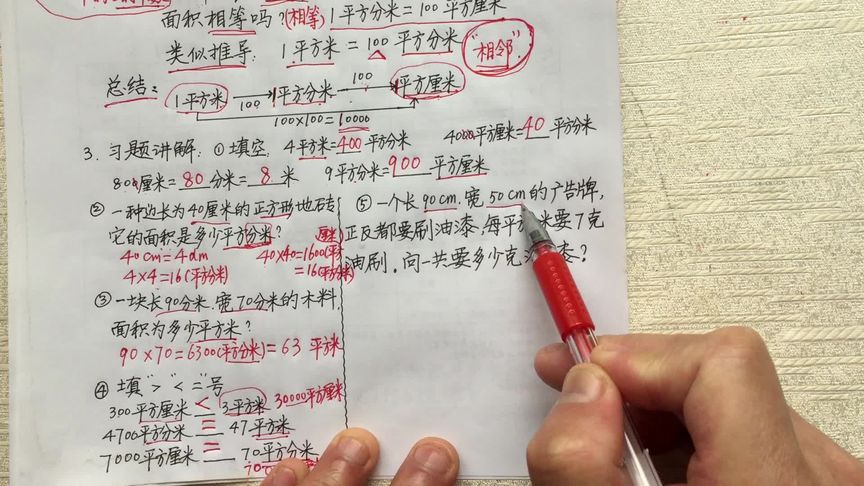 面积相等吗?(相等) 1平方分米=100平方厘米
类似推导: 1平方米=100平方分米 "相邻"
总结: 1平方米 100 1平方分米 100 平方厘米
100×100=10000
3. 习题讲解: ①填空: 4平方米=400平方分米 4000平方厘米=40平方分米
800厘米=80分米=8米 9平方分米=900平方厘米
② 一种边长为40厘米的正方形地砖
它的面积是多少平方分米?
40cm=4dm 40×40=1600(平方厘米)
4×4=16(平方分米) =16(平方分米)
③ 一块长90分米.宽70分米的木料.
面积为多少平方米?
90×70=6300(平方分米)=63平方米
④ 填">" "<" "="号
300平方厘米<3平方米 30000平方厘米
4700平方分米=47平方米
7000平方厘米=70平方分米
⑤ 一个长90cm.宽50cm的广告牌,
正反都要刷油漆.每平方米要7克
油刷.问一共要多少克漆?